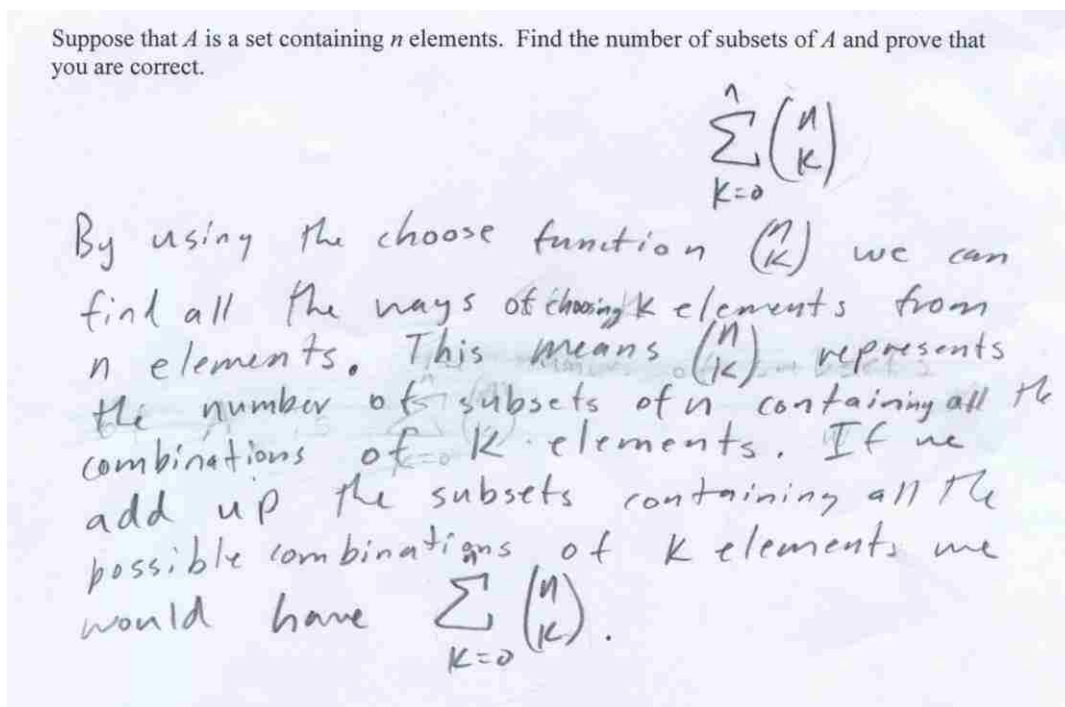 Suppose that A is a set containing n elements. Find the number of subsets of A and prove that
you are correct.
n
Σ (n K)
K=0
By using the choose function (n K) we can
find all the ways of choosing K elements from
n elements. This means (n K) represents
the number of subsets of n containing all the
combinations of K elements. If we
add up the subsets containing all the
possible combinations of K elements we
would have Σ (n K).
K=0